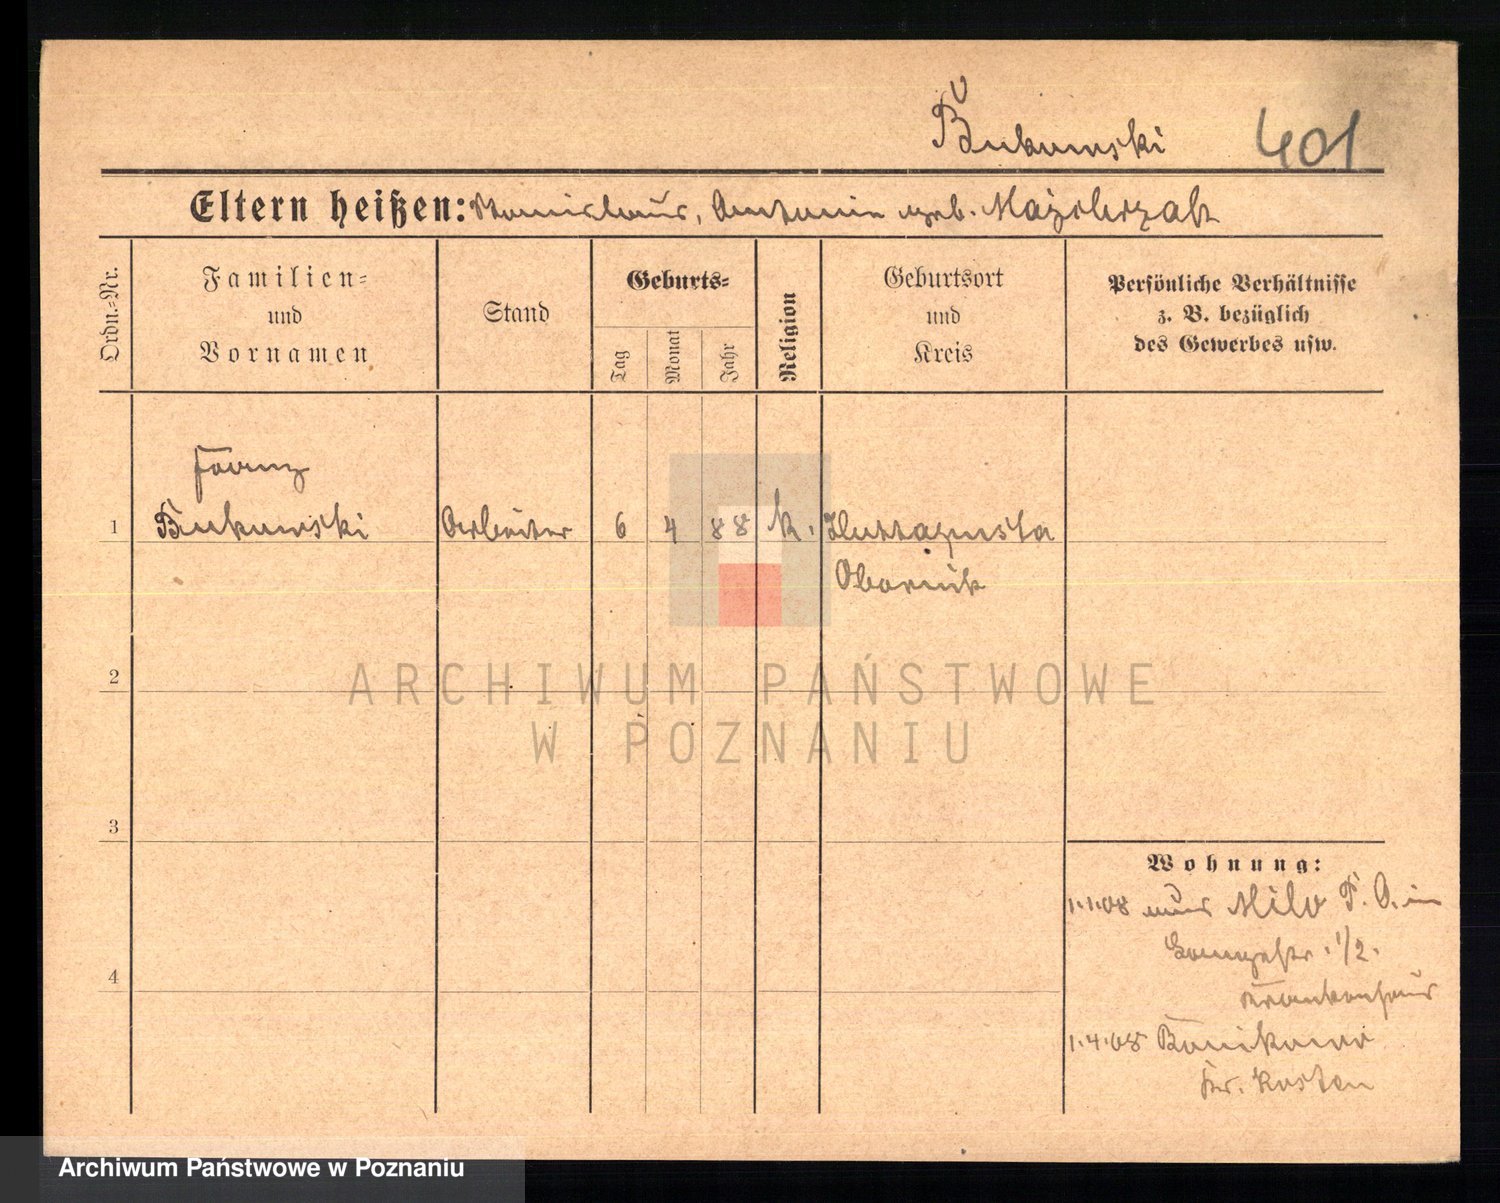 Bukowski 401
Eltern heißen: Stanislaus, Antonie geb. Majchrzak
Ordn.-Nr.
Familien-
und
Vornamen
Stand
Geburts-
Tag
Monat
Jahr
Religion
Geburtsort
und
Kreis
Persönliche Verhältnisse
z. B. bezüglich
des Gewerbes usw.
Franz
1 Bukowski Arbeiter 6 4 88 k. Huttapusta
Obornik
2
3
4
Wohnung:
1.1.08 aus Milo P. O. in
1/2.
Krankenhaus
1.4.08 Bonikowo
Kr. Kosten
ARCHIWUM PAŃSTWOWE
W POZNANIU
Archiwum Państwowe w Poznaniu